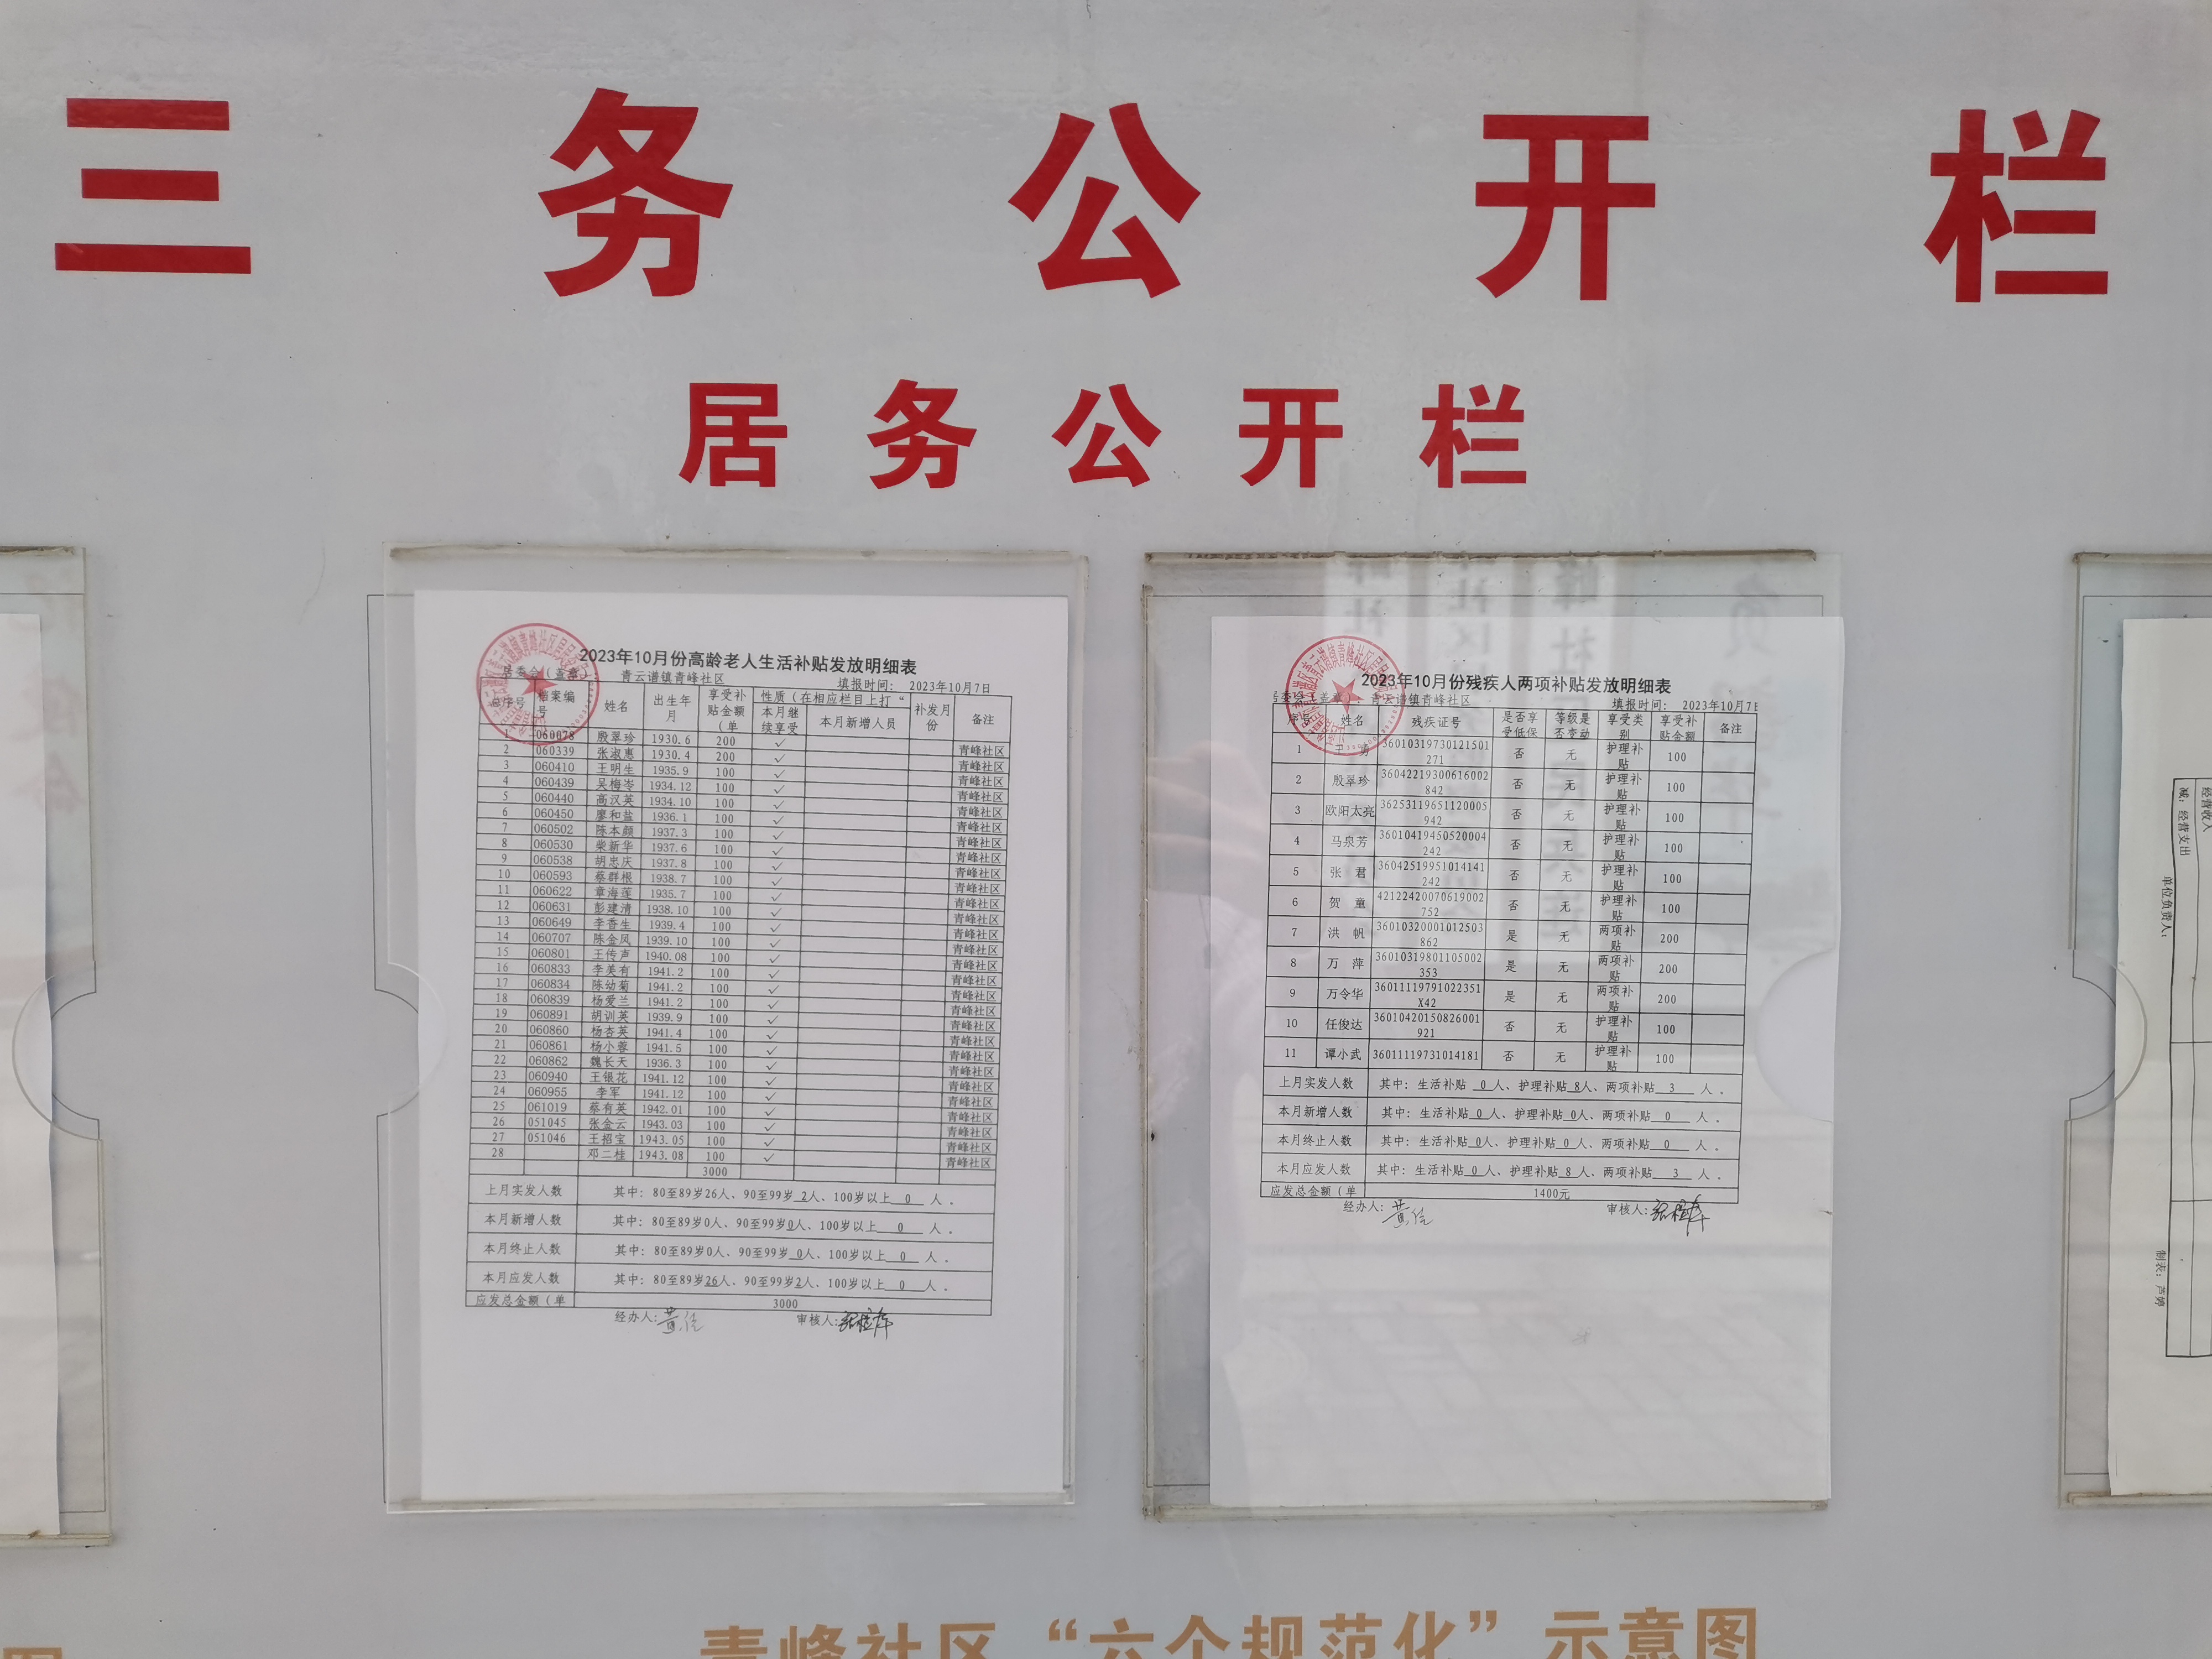 三务公开栏
居务公开栏
2023年10月份高龄老人生活补贴发放明细表
居委会(盖章 青云谱镇青峰社区 填报时间: 2023年10月7日
总序号 档案编号 姓名 出生年月 享受补贴金额(单 性质(在相应栏目上打“ 补发月份 备注
本月继续享受 本月新增人员
1 060078 殷翠珍 1930.6 200 ✓ 青峰社区
2 060339 张淑惠 1930.4 200 ✓ 青峰社区
3 060410 王明生 1935.9 100 ✓ 青峰社区
4 060439 吴梅岑 1934.12 100 ✓ 青峰社区
5 060440 高汉英 1934.10 100 ✓ 青峰社区
6 060450 廖和盐 1936.1 100 ✓ 青峰社区
7 060502 陈本颜 1937.3 100 ✓ 青峰社区
8 060530 柴新华 1937.6 100 ✓ 青峰社区
9 060538 胡忠庆 1937.8 100 ✓ 青峰社区
10 060593 蔡群根 1938.7 100 ✓ 青峰社区
11 060622 章海莲 1935.7 100 ✓ 青峰社区
12 060631 彭建清 1938.10 100 ✓ 青峰社区
13 060649 李香生 1939.4 100 ✓ 青峰社区
14 060707 陈金凤 1939.10 100 ✓ 青峰社区
15 060801 王传声 1940.08 100 ✓ 青峰社区
16 060833 李美有 1941.2 100 ✓ 青峰社区
17 060834 陈幼菊 1941.2 100 ✓ 青峰社区
18 060839 杨爱兰 1941.2 100 ✓ 青峰社区
19 060891 胡训英 1939.9 100 ✓ 青峰社区
20 060860 杨杏英 1941.4 100 ✓ 青峰社区
21 060861 杨小蓉 1941.5 100 ✓ 青峰社区
22 060862 魏长天 1936.3 100 ✓ 青峰社区
23 060940 王银花 1941.12 100 ✓ 青峰社区
24 060955 李军 1941.12 100 ✓ 青峰社区
25 061019 蔡有英 1942.01 100 ✓ 青峰社区
26 051045 张金云 1943.03 100 ✓ 青峰社区
27 051046 王招宝 1943.05 100 ✓ 青峰社区
28 邓二桂 1943.08 100 ✓ 青峰社区
3000
上月实发人数 其中: 80至89岁26人、90至99岁 2人、100岁以上 0 人.
本月新增人数 其中: 80至89岁0人、90至99岁0人、100岁以上 0 人.
本月终止人数 其中: 80至89岁0人、90至99岁 0人、100岁以上 0 人.
本月应发人数 其中: 80至89岁26人、90至99岁2人、100岁以上 0 人.
应发总金额(单 3000
经办人: 审核人:
2023年10月份残疾人两项补贴发放明细表
青云谱镇青峰社区 填报时间: 2023年10月7日
序号 姓名 残疾证号 是否享受低保 等级是否变动 享受类别 享受补贴金额 备注
1 36010319730121501271 否 无 护理补贴 100
2 殷翠珍 36042219300616002842 否 无 护理补贴 100
3 欧阳太亮 36253119651120005942 否 无 护理补贴 100
4 马泉芳 36010419450520004242 否 无 护理补贴 100
5 张 君 36042519951014141242 否 无 护理补贴 100
6 贺 童 42122420070619002752 否 无 护理补贴 100
7 洪 帆 36010320001012503862 是 无 两项补贴 200
8 万 萍 36010319801105002353 是 无 两项补贴 200
9 万令华 36011119791022351X42 是 无 两项补贴 200
10 任俊达 36010420150826001921 否 无 护理补贴 100
11 谭小武 36011119731014181 否 无 护理补贴 100
上月实发人数 其中: 生活补贴 0 人、护理补贴 8人、两项补贴 3 人.
本月新增人数 其中: 生活补贴 0 人、护理补贴 0人、两项补贴 0 人.
本月终止人数 其中: 生活补贴 0人、护理补贴 0 人、两项补贴 0 人.
本月应发人数 其中: 生活补贴 0 人、护理补贴 8 人、两项补贴 3 人.
应发总金额(单 1400元
经办人: 审核人:
经营收入
减: 经营支出
单位负责人:
制表: 芦婷
青峰社区“六个规范化”示意图
图